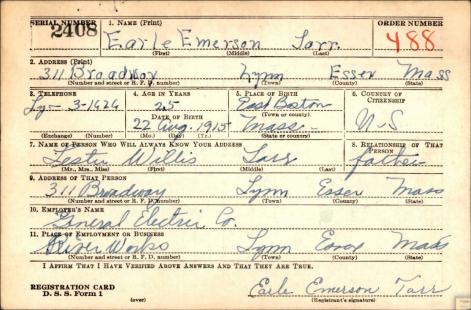 SERIAL NUMBER 1. NAME (Print) ORDER NUMBER
2408 Earle Emerson Tarr 488
(First) (Middle) (Last)
2. ADDRESS (Print)
311 Broadway Lynn Essex Mass
(Number and street or R. F. D. number) (Town) (County) (State)
3. TELEPHONE 4. AGE IN YEARS 5. PLACE OF BIRTH 6. COUNTRY OF CITIZENSHIP
Ly- 3-1626 25 East Boston
DATE OF BIRTH (Town or county)
22 Aug. 1915 Mass. U-S
(Exchange) (Number) (Mo.) (Day) (Yr.) (State or country)
7. NAME OF PERSON WHO WILL ALWAYS KNOW YOUR ADDRESS 8. RELATIONSHIP OF THAT PERSON
Lester Willis Tarr father
(Mr., Mrs., Miss) (First) (Middle) (Last)
9. ADDRESS OF THAT PERSON
311 Broadway Lynn Essex Mass
(Number and street or R. F. D. number) (Town) (County) (State)
10. EMPLOYER'S NAME
General Electric Co.
11. PLACE OF EMPLOYMENT OR BUSINESS
River Works Lynn Essex Mass
(Number and street or R. F. D. number) (Town) (County) (State)
I AFFIRM THAT I HAVE VERIFIED ABOVE ANSWERS AND THAT THEY ARE TRUE.
REGISTRATION CARD
D. S. S. Form 1 (over) Earle Emerson Tarr
(Registrant's signature)